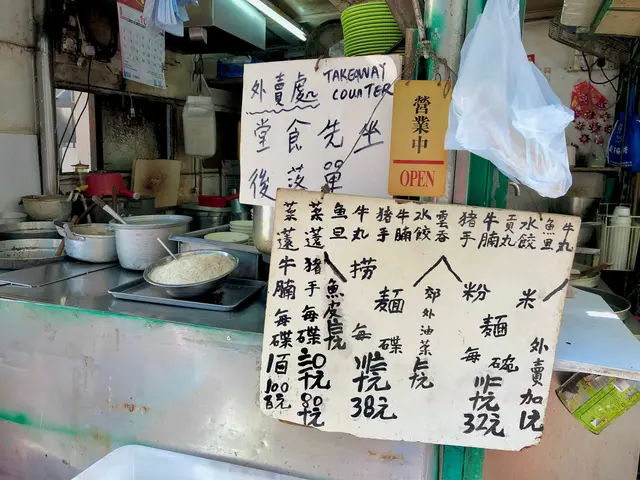 外賣處
TAKEAWAY
COUNTER
堂食先坐
後落單
營業中
OPEN
牛丸
魚旦
水餃
貢丸
牛腩
豬手
米粉麵每碗
32元
外賣加1元
雲吞
水餃
郊外油菜
牛腩
豬手
牛丸
魚旦
撈麵每碟
38元
魚皮
菜薳豬手每碟
80元
菜薳牛腩每碟
100元